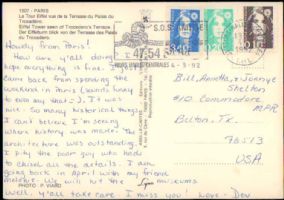 1507 - PARIS
La Tour Eiffel vue de la Terrasse du Palais du
Trocadéro.
Eiffel Tower seen of Trocadéro's Terrace.
Der Eiffelturm blick von der Terrasse des Palais
du Trocadéro.
Howdy from Paris!
How are y'all doing
hope everything is fine. I
came back from spending the
weekend in Paris (sounds funny
to even say that?). It was
nice. So many historical things,
I can't believe I'm seeing
where things were. The
architecture was outstanding.
I pity the poor guy who had
to chisel all the details. I am
going back in April with my friend
We will hit the museums
Well, y'all take care. I miss you! Love - Dev
PHOTO: P. VIARD
S.O.S.
47.54
4-3-92
Bill, & Jonnye
Shelton
#10 Commodore
Belton, Tx.
76513
USA